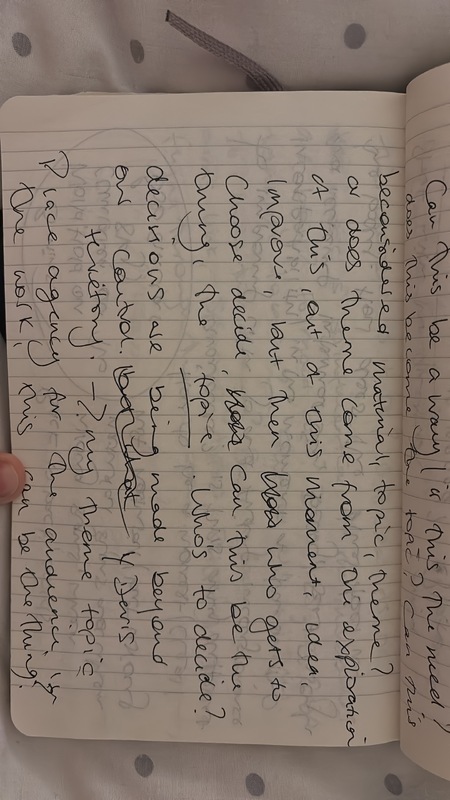 Can this be a way / is this the need?
does this become the topic? Can this
be considered material, topic, theme?
or does theme come from the exploration
of this, out of this moment, idea,
Improve, but then who gets to
Choose decide, can this be the
thing, the topic. Who's to decide?
decisions are being made beyond
our control. Davis
territory. -? my theme topic
Place agency for the audience in
the work, this can be the thing.